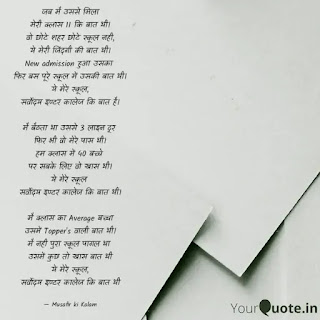 जब मैं उससे मिला
मेरी क्लास 11 कि बात थी।
वो छोटे शहर छोटे स्कूल नहीं,
ये मेरी जिंदगी की बात थी।
New admission हुआ उसका
फिर बस पूरे स्कूल में उसकी बात थी।
ये मेरे स्कूल,
सर्वोदय इण्टर कालेज कि बात है।
मैं बैठता था उससे 3 लाइन दूर
फिर भी वो मेरे पास थी।
हम क्लास में 40 बच्चे
पर सबके लिए वो खास थी।
ये मेरे स्कूल
सर्वोदय इण्टर कालेज कि बात थी।
मैं क्लास का Average बच्चा
उसमें Topper's वाली बात थी।
मैं नही पुरा स्कूल पागल था
उसमें कुछ तो खास बात थी
ये मेरे स्कूल,
सर्वोदय इण्टर कालेज कि बात थी
— Musafir ki Kalam
YourQuote.in